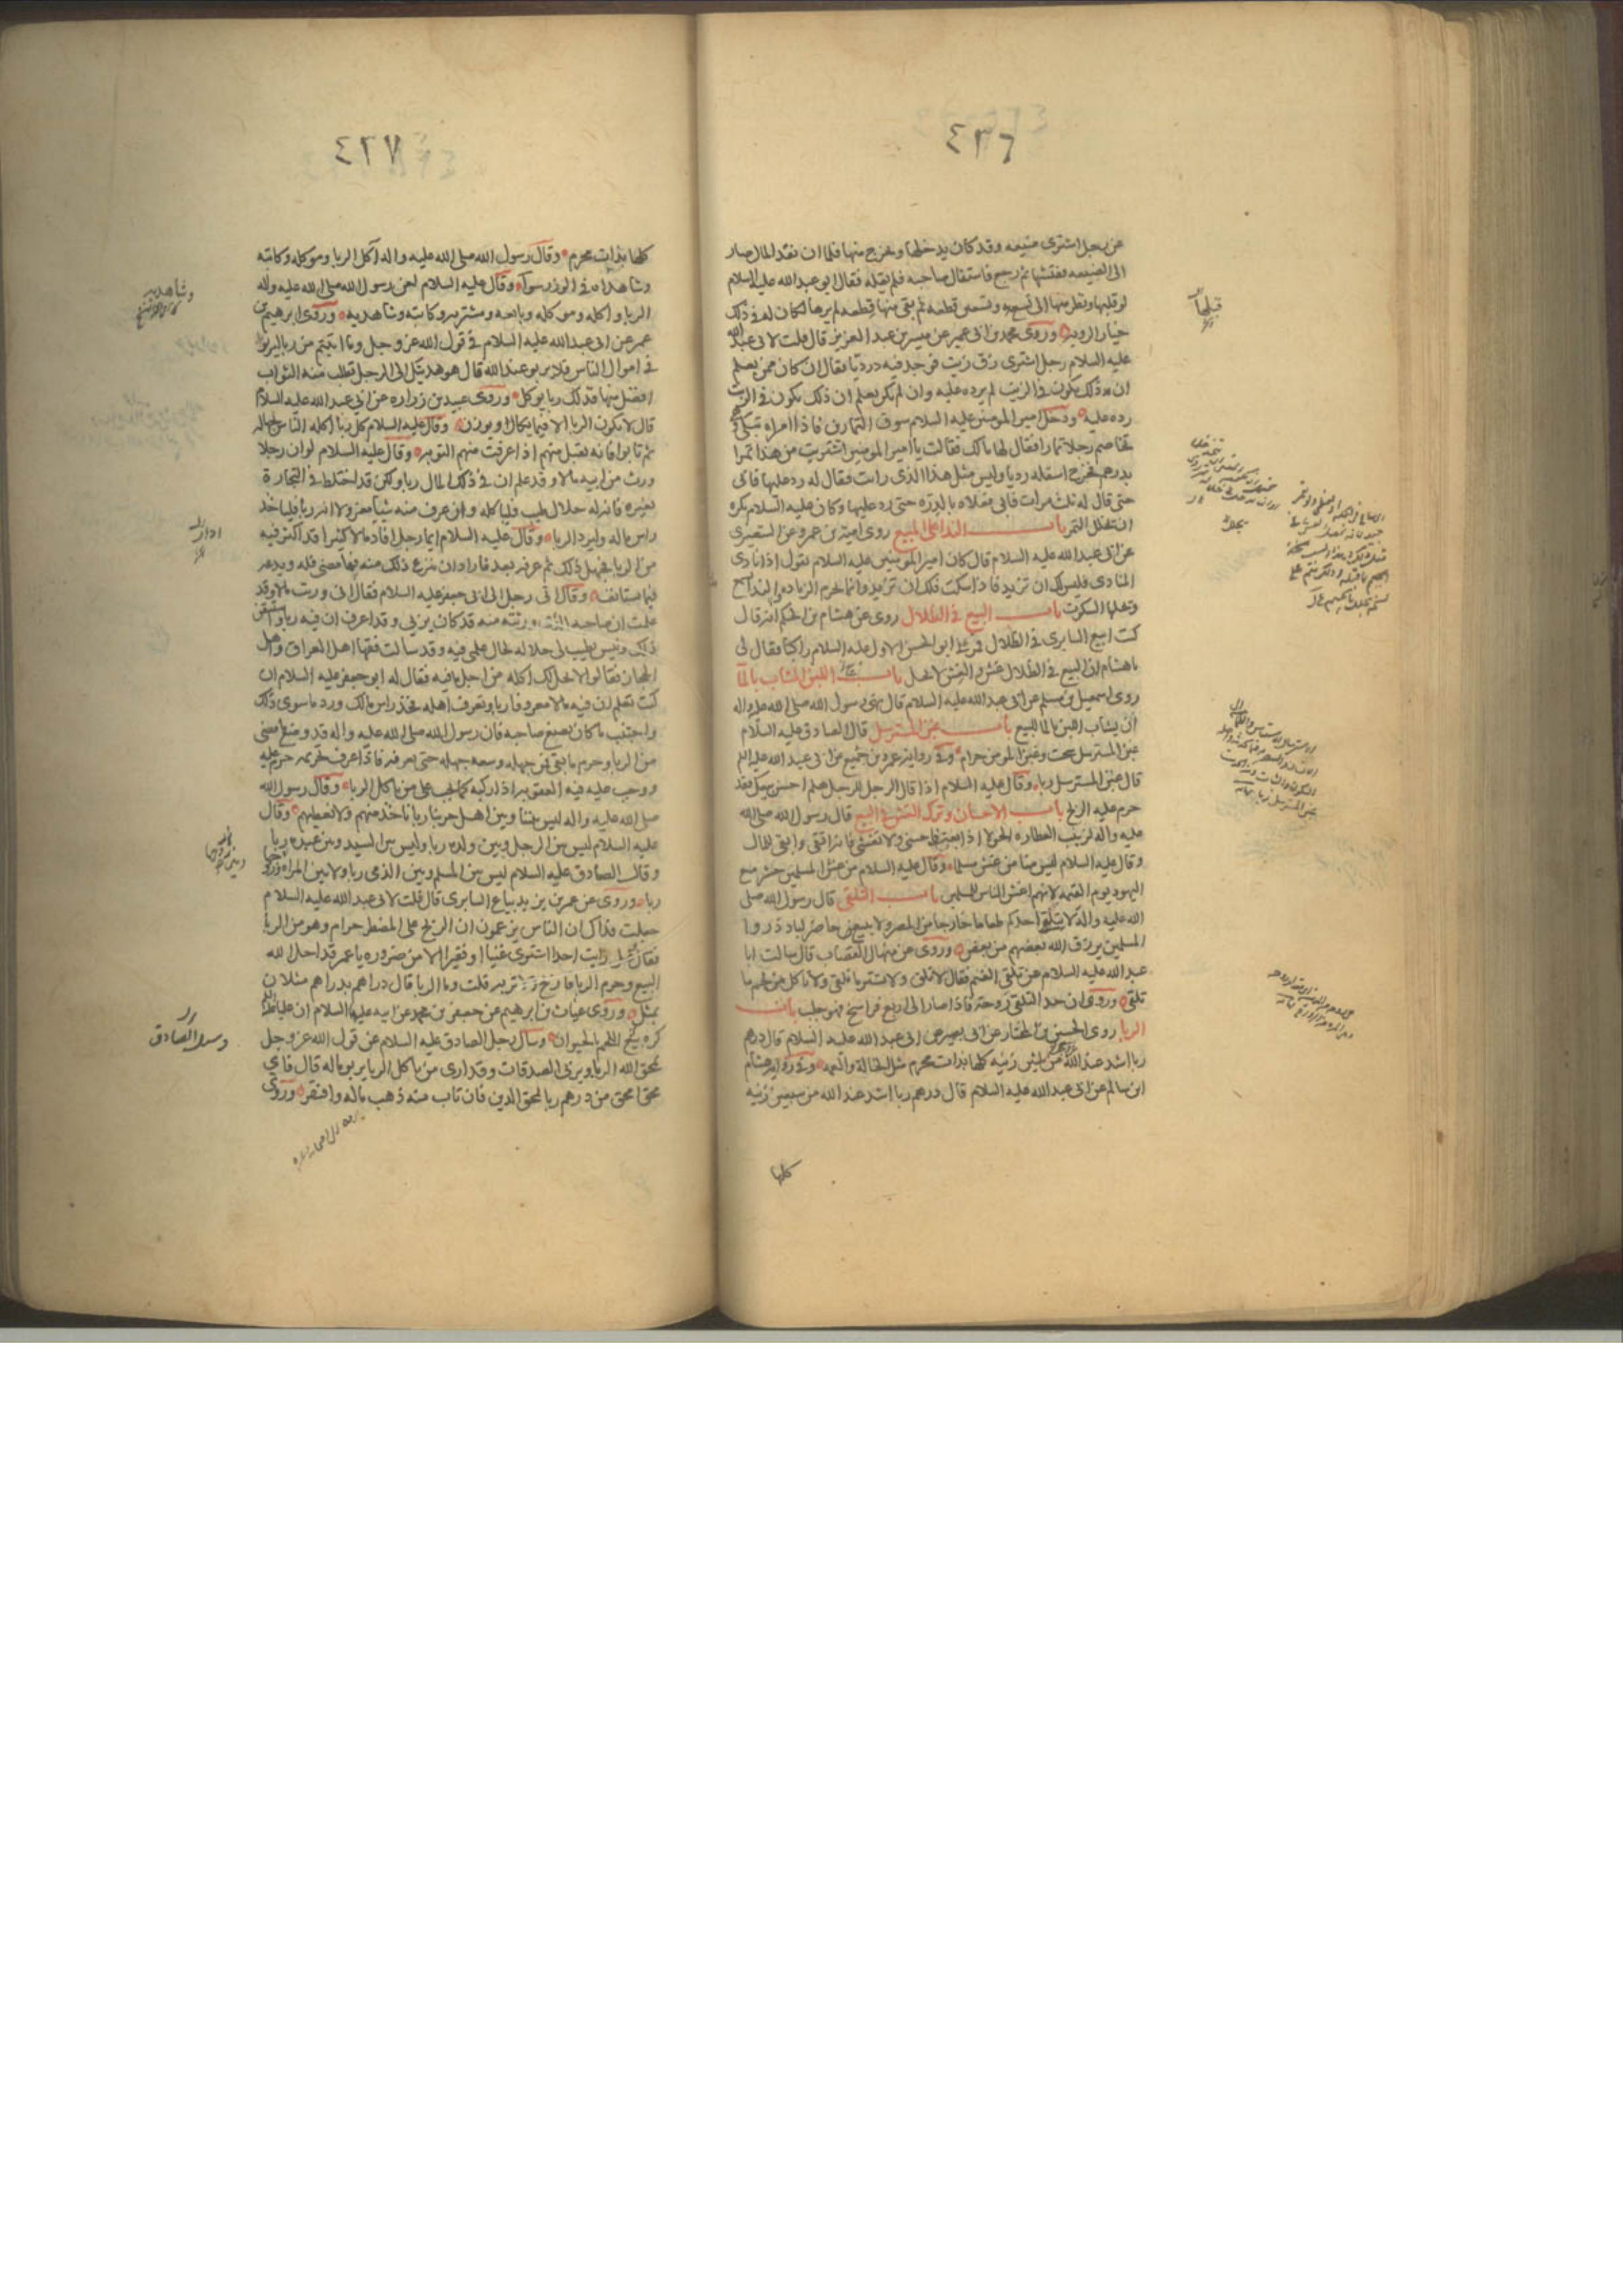 ٤٣٦
عن رجل اشترى ضيعه وقد كان يدخلها ويخرج منها فلما ان نقد المال صار
الى الضيعه ففتشها ثم رجع فاستقال صاحبه فلم يقله فقال ابو عبد الله عليه السلام
لو قلبها ونظر منها الى تسعه وتسعين قطعه ثم بقى منها قطعه لم يرها لكان له فى ذلك
خيار الرويه وروى محمد بن ابى عمير عن ميسر بن عبد العزيز قال قلت لابى عبد الله
عليه السلام رجل اشترى زق زيت فوجد فيه درديا فقال ان كان ممن يعلم
ان ذلك يكون فى الزيت لم يرده عليه وان لم يكن يعلم ان ذلك يكون فى الزيت
رده عليه ودخل امير المومنين عليه السلام سوق التمارين فاذا امراه تبكى
تخاصم رجلا تمارا فقال لها مالك فقالت يا امير المومنين اشتريت من هذا تمرا
بدرهم فخرج اسفله رديا وليس مثل هذا الذى رايت فقال له رد عليها فابى
حتى قال له ثلث مرات فابى فعلاه بالدره حتى رد عليها وكان عليه السلام يكره
ان يجلل التمر باب النداء على المبيع روى امية بن عمرو عن الشعيرى
عن ابى عبد الله عليه السلام قال كان امير المومنين عليه السلام يقول اذا نادى
المنادى فليس لك ان تزيد فاذا سكت فلك ان تزيد وانما تحرم الزياده والنداء يسمع
وتحلها السكوت باب البيع فى الظلال روى عن هشام بن الحكم انه قال
كنت ابيع السابرى فى الظلال فمر بى ابو الحسن الاول عليه السلام راكبا فقال لى
يا هشام ان البيع فى الظلال غش والغش لا يحل باب بيع اللبن المشاب بالماء
روى اسمعيل بن مسلم عن ابى عبد الله عليه السلام قال نهى رسول الله صلى الله عليه واله
ان يشاب اللبن بالماء للبيع باب غبن المسترسل قال الصادق عليه السلام
غبن المسترسل سحت وغبن المومن حرام وفى روايه عمرو بن جميع عن ابى عبد الله عليه السلم
قال غبن المسترسل ربا وقال عليه السلام اذا قال الرجل للرجل هلم احسن بيعك فقد
حرم عليه الربح باب الاحسان وترك الغش فى البيع قال رسول الله صلى الله
عليه واله لزينب العطاره الحولاء اذا بعت فاحسنى ولا تغشى فانه اتقى وابقى للمال
وقال عليه السلام ليس منا من غش مسلما وقال عليه السلام من غش المسلمين حشر مع
اليهود يوم القيمه لانهم اغش الناس للمسلمين باب التلقى قال رسول الله صلى
الله عليه واله لا يتلقى احدكم طعاما خارجا من المصر ولا يبيع حاضر لباد ذروا
المسلمين يرزق الله بعضهم من بعض وروى عن منهال القصاب قال سالت ابا
عبد الله عليه السلام عن تلقى الغنم فقال لا تلق ولا تشتر ما تلقى ولا تاكل من لحم ما
تلقى وروى ان حد التلقى روحة فاذا صار الى اربع فراسخ فهو جلب باب
الربا روى الحسين بن المختار عن ابى بصير عن ابى عبد الله عليه السلام قال درهم
ربا اشد عند الله من ثلثين زنيه كلها بذات محرم مثل الخالة والعمه وفى روايه هشام
ابن سالم عن ابى عبد الله عليه السلام قال درهم ربا اشد عند الله من سبعين زنيه
كلها
قبلها
٤٢٧
كلها بذات محرم وقال رسول الله صلى الله عليه واله آكل الربا وموكله وكاتبه
وشاهداه فى الوزر سواء وقال عليه السلام لعن رسول الله صلى الله عليه واله
الربا واكله وموكله وبايعه ومشتريه وكاتبه وشاهديه وروى ابرهيم بن
عمر عن ابى عبد الله عليه السلام فى قول الله عز وجل وما اتيتم من ربا ليربو
فى اموال الناس فلا يربو عند الله قال هو هديتك الى الرجل تطلب منه الثواب
افضل منها فذلك ربا يوكل وروى عبيد بن زراره عن ابى عبد الله عليه السلام
قال لا يكون الربا الا فيما يكال او يوزن وقال عليه السلام كل ربا اكله الناس بجهاله
ثم تابوا فانه يقبل منهم اذا عرفت منهم التوبه وقال عليه السلام لو ان رجلا
ورث من ابيه مالا وقد علم ان فى ذلك المال ربا ولكن قد اختلط فى التجارة
بغيره فانه له حلال طيب فلياكله وان عرف منه شيئا معزولا انه ربا فلياخذ
راس ماله وليرد الربا وقال عليه السلام ايما رجل افاد مالا كثيرا قد اكثر فيه
من الربا فجهل ذلك ثم عرفه بعد فاراد ان ينزع ذلك منه فما مضى فله ويدعه
فيما يستانف وقال اتى رجل الى ابى جعفر عليه السلام فقال انى ورثت مالا وقد
علمت ان صاحبه الذى ورثته منه قد كان يربى وقد اعرف ان فيه ربا واستيقن
ذلك وليس يطيب لى حلاله لحال علمى فيه وقد سالت فقهاء اهل العراق واهل
الحجاز فقالوا لا يحل لك اكله من اجل ما فيه فقال له ابو جعفر عليه السلام ان
كنت تعلم ان فيه مالا معروفا ربا وتعرف اهله فخذ راس مالك ورد ما سوى ذلك
واجتنب ما كان يصنع صاحبه فان رسول الله صلى الله عليه واله قد وضع ما مضى
من الربا وحرم ما بقى فمن جهله وسعه جهله حتى يعرفه فاذا عرف تحريمه حرم عليه
ووجب عليه فيه العقوبه اذا ركبه كما يجب على من ياكل الربا وقال رسول الله
صلى الله عليه واله ليس بيننا وبين اهل حربنا ربا ناخذ منهم ولا نعطيهم وقال
عليه السلام ليس بين الرجل وبين ولده ربا وليس بين السيد وبين عبده ربا
وقال الصادق عليه السلام ليس بين المسلم وبين الذمى ربا ولا بين المراه وزوجها
ربا وروى عن عمر بن يزيد بياع السابرى قال قلت لابى عبد الله عليه السلام
جعلت فداك ان الناس يزعمون ان الربح على المضطر حرام وهو من الربا
فقال وهل رايت احدا اشترى غنيا او فقيرا الا من ضروره يا عمر قد احل الله
البيع وحرم الربا فاربح ولا تربه قلت وما الربا قال دراهم بدراهم مثلان
بمثل وروى غياث بن ابرهيم عن جعفر بن محمد عن ابيه عليهما السلام ان عليا
كره بيع اللحم بالحيوان وسال رجل الصادق عليه السلام عن قول الله عز وجل
يمحق الله الربا ويربى الصدقات وقد ارى من ياكل الربا يربو ماله قال فاى
محق امحق من درهم ربا يمحق الدين فان تاب منه ذهب ماله وافتقر وروى
وشاهديه
وسئل الصادق